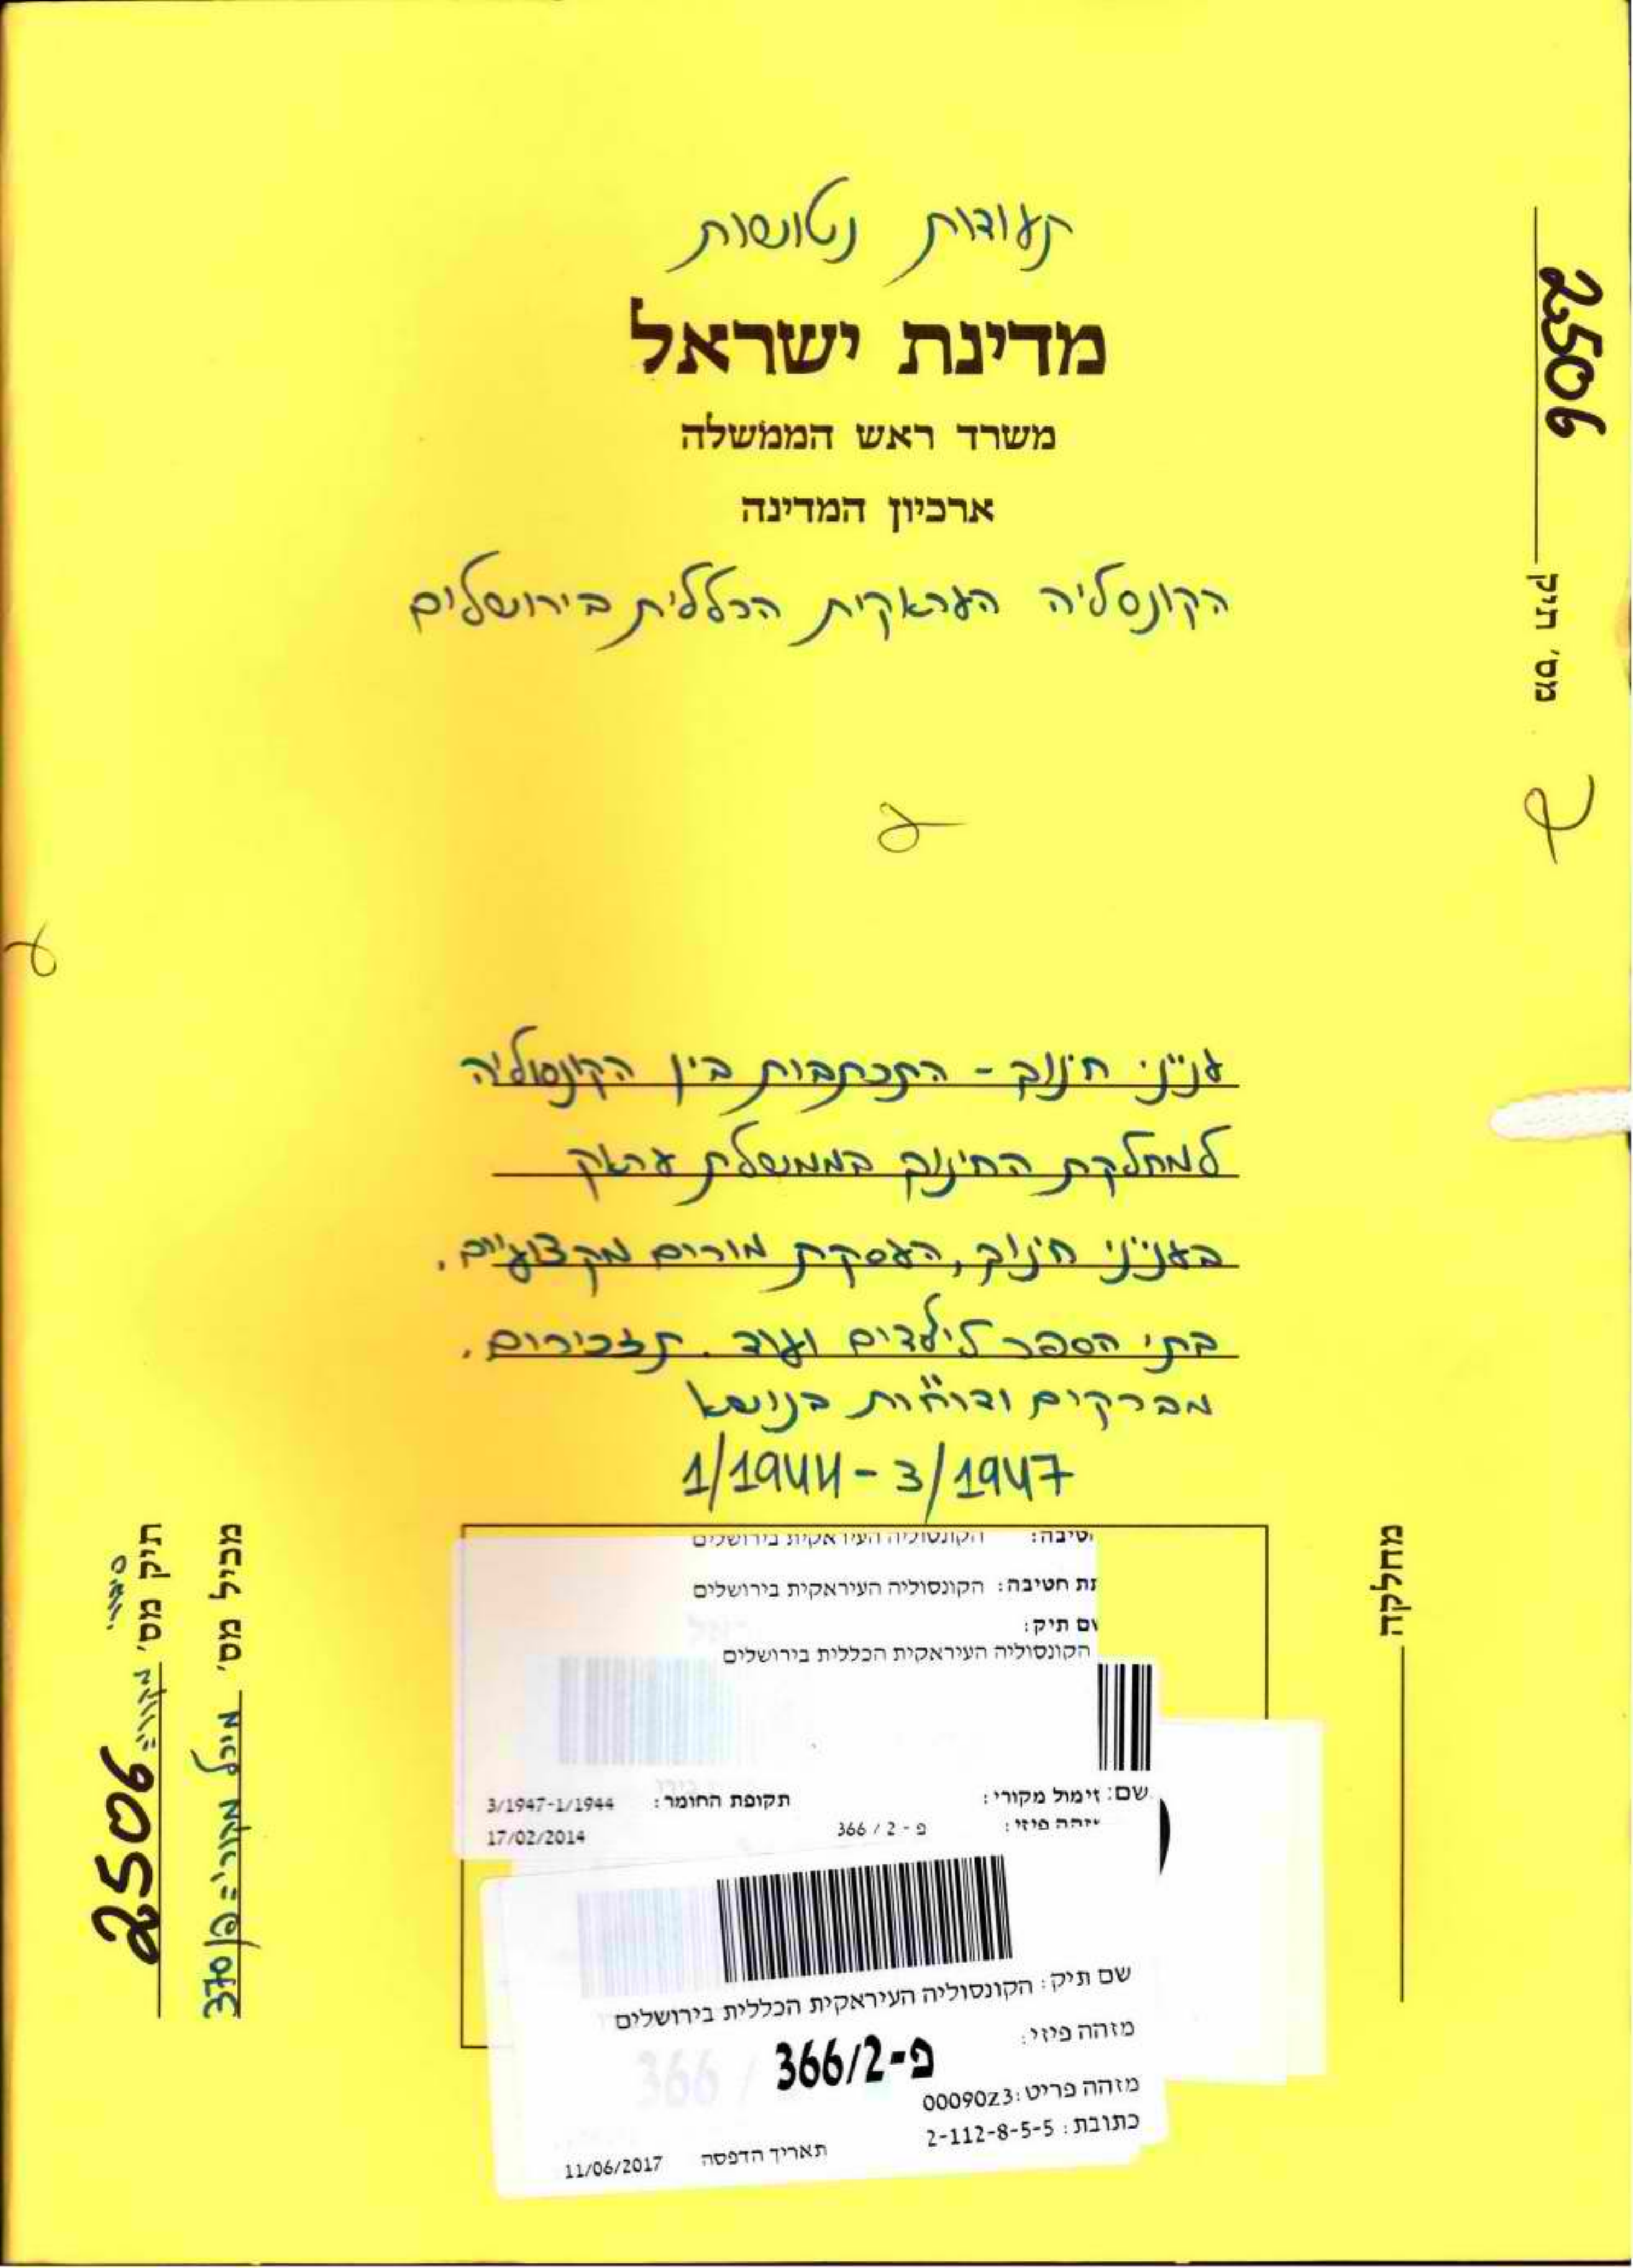 תעודות נטושות
מדינת ישראל
משרד ראש הממשלה
ארכיון המדינה
הקונסליה העראקית הכללית בירושלים
2506
מס' תיק
עניני חינוך - התכתבות בין הקונסוליה
למחלקת החינוך בממשלת עראק
בעניני חינוך, העסקת מורים מקצועיים.
בתי הספר לילדים ועוד. תזכירים.
מברקים ודו"חות בנושא
1/1944 - 3/1947
טיבה: הקונסוליה העיראקית בירושלים
תת חטיבה: הקונסוליה העיראקית בירושלים
ם תיק:
הקונסוליה העיראקית הכללית בירושלים
שם: זימול מקורי:
תקופת החומר: 3/1947-1/1944
זהה פיזי: פ - 2 / 366
17/02/2014
שם תיק: הקונסוליה העיראקית הכללית בירושלים
מזהה פיזי:
פ-366/2
מזהה פריט: 00090z3
כתובת: 2-112-8-5-5
תאריך הדפסה 11/06/2017
מחלקה
מכיל מס' מיכל מקורי = פ/370
תיק מס' מקורי = 2506